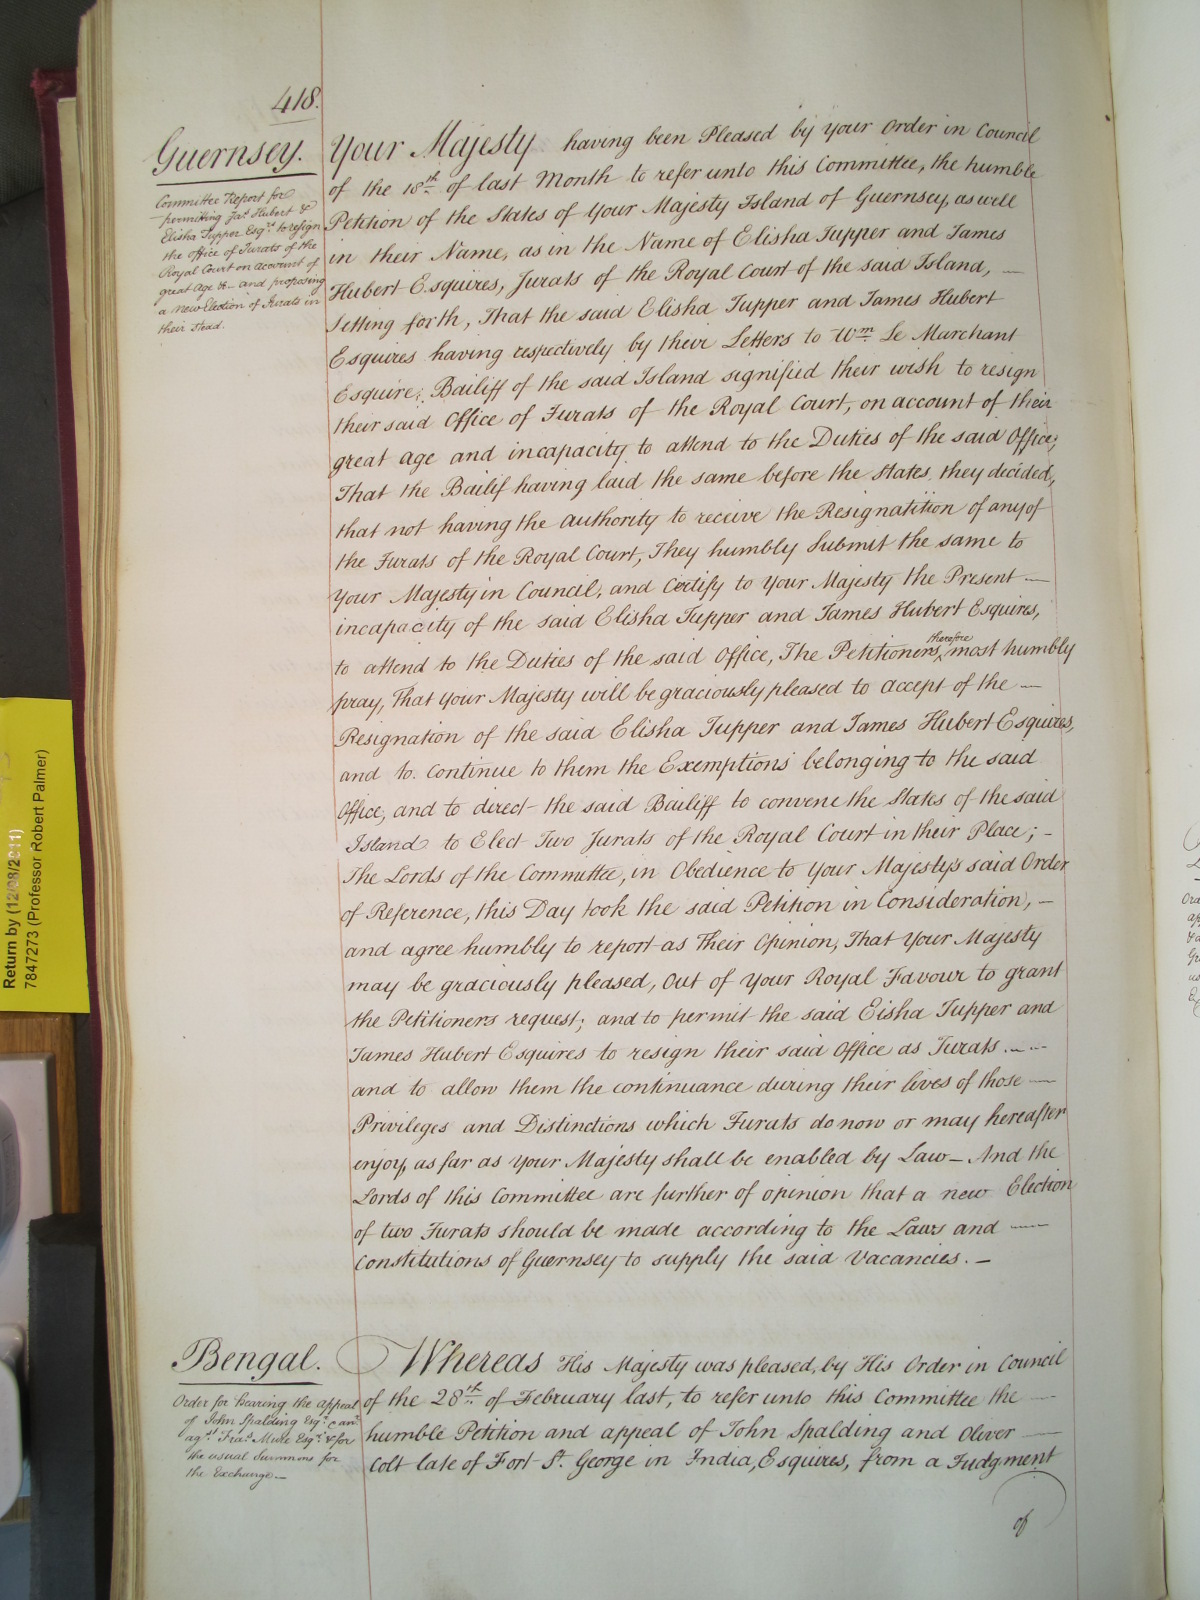 418.
Guernsey.
Committee Report for
permitting Jas. Hubert &
Elisha Tupper Esqrs. to resign
the office of Jurats of the
Royal Court on account of
great Age &c. and proposing
a new Election of Jurats in
their stead.
Your Majesty having been Pleased by your Order in Council
of the 18th. of last Month to refer unto this Committee, the humble
Petition of the States of Your Majesty Island of Guernsey, as well
in their Name, as in the Name of Elisha Tupper and James
Hubert Esquires, Jurats of the Royal Court of the said Island, —
Setting forth, That the said Elisha Tupper and James Hubert
Esquires having respectively by their Letters to Wm. Le Marchant
Esquire; Bailiff of the said Island signified their wish to resign
their said Office of Jurats of the Royal Court, on account of their
great age and incapacity to attend to the Duties of the said Office;
That the Bailif having laid the same before the States, they decided,
that not having the authority to receive the Resignatition of any of
the Jurats of the Royal Court, They humbly Submit the same to
Your Majesty in Council, and Certify to Your Majesty the Present —
incapacity of the said Elisha Tupper and James Hubert Esquires,
to attend to the Duties of the said Office, The Petitioners therefore most humbly
pray, That Your Majesty will be graciously pleased to accept of the —
Resignation of the said Elisha Tupper and James Hubert Esquires,
and to continue to them the Exemptions belonging to the said
Office, and to direct the said Bailiff to convene the States of the said
Island to Elect Two Jurats of the Royal Court in their Place; -
The Lords of the Committee, in Obedience to Your Majesty's said Order
of Reference, this Day took the said Petition in Consideration, —
and agree humbly to report as Their Opinion, That Your Majesty
may be graciously pleased, out of Your Royal Favour to grant
the Petitioners request; and to permit the said Eisha Tupper and
James Hubert Esquires to resign their said Office as Jurats ...
and to allow them the continuance during their lives of those —
Privileges and Distinctions which Jurats do now or may hereafter
enjoy, as far as Your Majesty shall be enabled by Law — And the
Lords of this Committee are further of opinion that a new Election
of two Jurats should be made according to the Laws and —
Constitutions of Guernsey to supply the said Vacancies. —
Bengal.
Order for hearing the appeal
of John Spalding Esqr. & anr.
agst. Fras. Mure Esqr. & for
the usual Summons for
the Exchange —
Whereas His Majesty was pleased, by His Order in Council
of the 28th. of February last, to refer unto this Committee the —
humble Petition and appeal of John Spalding and Oliver —
Colt late of Fort St. George in India, Esquires, from a Judgment
of
Return by (12/08/2011)
7847273 (Professor Robert Palmer)